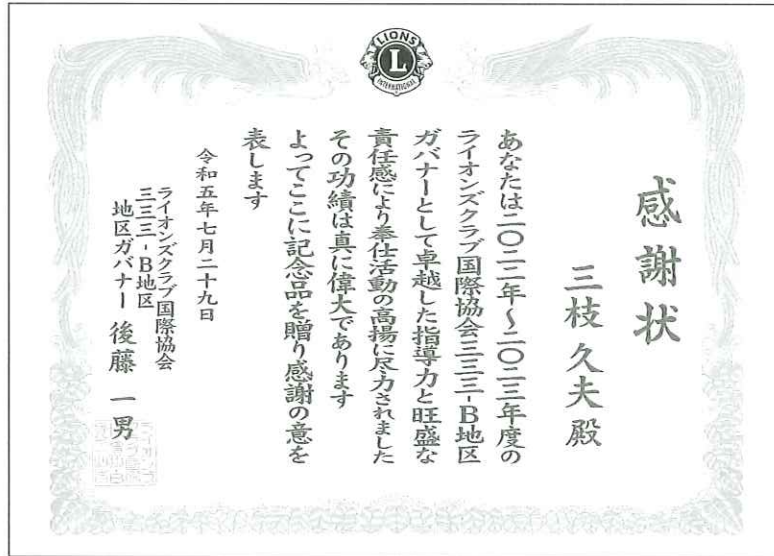 LIONS
L
INTERNATIONAL
感謝状
三枝久夫殿
あなたは二〇二二年～二〇二三年度の
ライオンズクラブ国際協会三三三-B地区
ガバナーとして卓越した指導力と旺盛な
責任感により奉仕活動の高揚に尽力されました
その功績は真に偉大であります
よってここに記念品を贈り感謝の意を
表します
令和五年七月二十九日
ライオンズクラブ国際協会
三三三-B地区
地区ガバナー 後藤 一男